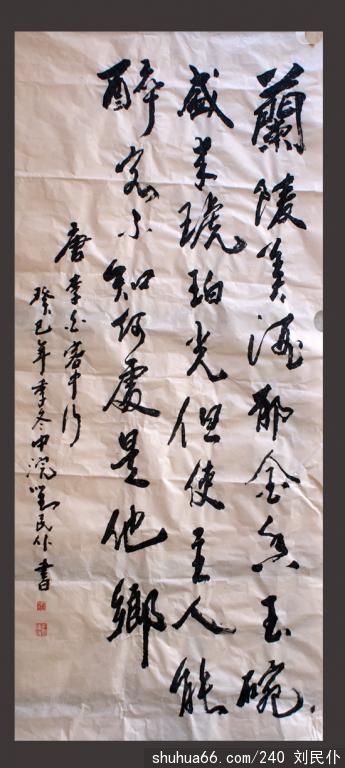 蘭陵美酒郁金香玉碗
盛来琥珀光但使主人能
醉客不知何處是他鄉
唐李白客中行
癸巳年季冬中浣劉民仆書
shuhua66.com/240 刘民仆